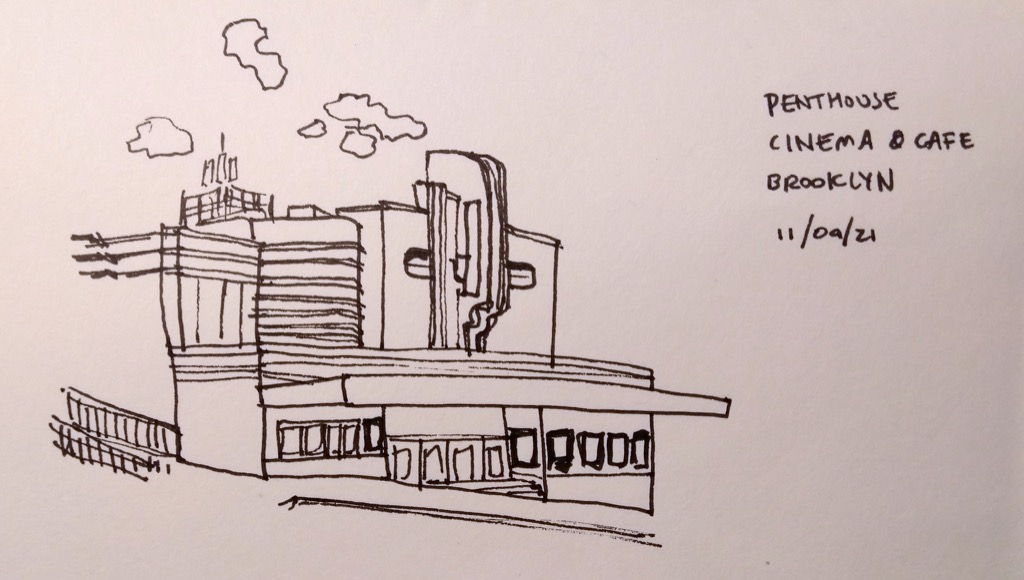 PENTHOUSE
CINEMA & CAFE
BROOKLYN
11/09/21